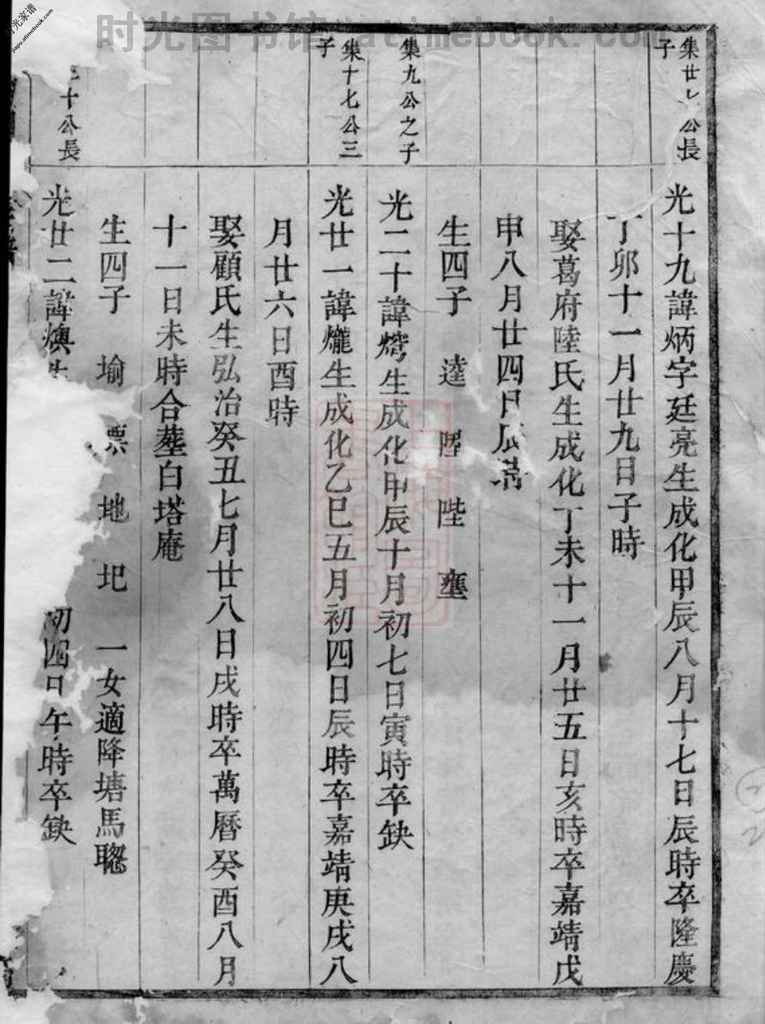 时光图书馆
集廿七公長子
光十九諱炳字廷亮生成化甲辰八月十七日辰時卒隆慶
丁卯十一月廿九日子時
娶葛府陸氏生成化丁未十一月廿五日亥時卒嘉靖戊
申八月廿四日辰時
生四子 達 陞 陛 壅
集九公之子
光二十諱生成化甲辰十月初七日寅時卒缺
集十七公三子
光廿一諱爖生成化乙巳五月初四日辰時卒嘉靖庚戌八
月廿六日酉時
娶顧氏生弘治癸丑七月廿八日戌時卒萬曆癸酉八月
十一日未時合塟白塔庵
生四子 埨 地 圯 一女適降塘馬聰
十公長
光廿二諱燠生 初四日午時卒缺